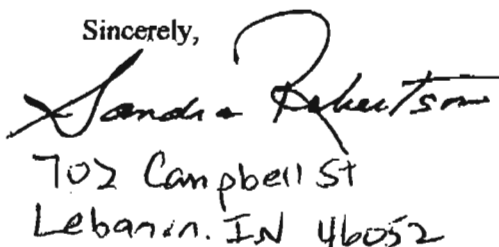 Sincerely,
Sandra Robertson
702 Campbell St
Lebanon. IN 46052